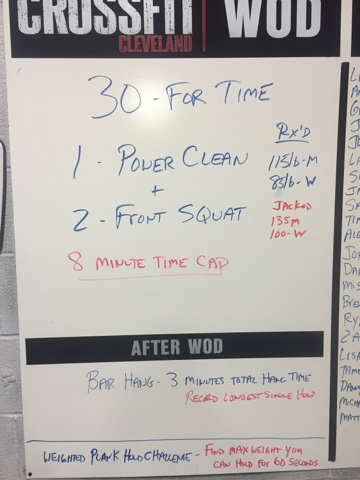 CROSSFIT WOD
CLEVELAND
30 - FOR TIME
RX'D
1 - POWER CLEAN 115lb-M
+ 85lb-W
2 - FRONT SQUAT JACKED
135M
100-W
8 MINUTE TIME CAP
AFTER WOD
BAR HANG - 3 MINUTES TOTAL HANG TIME
RECORD LONGEST SINGLE HOLD
WEIGHTED PLANK HOLD CHALLENGE - FIND MAX WEIGHT YOU
CAN HOLD FOR 60 SECONDS